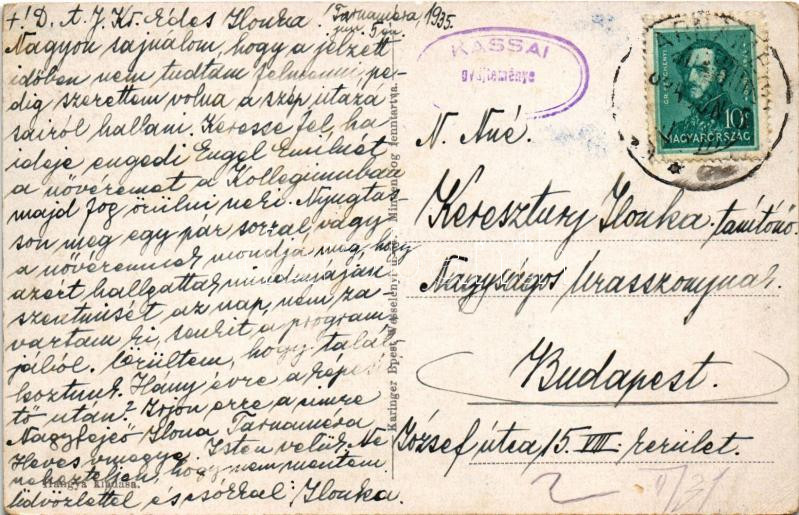 +! D. A. J. Kr. Édes Ilonka! Tarnaméra, 1935.
Nagyon sajnálom, hogy a jelzett
időben nem tudtam felmenni, pe-
dig szerettem volna a szép utazá
sairól hallani. Keresse fel, ha
ideje engedi Engel Emilnét
a nővéremet a Kollégiumban
majd fog örülni neki. Nyugtas-
son meg egy pár sorral, vagy
a nővéremnek mondja meg, hogy
azért hallgattak mindnyájan
szentmisét az nap, nem za
vartam ki, senkit a program
jából. Örültem, hogy talál
koztunk. Hány évre a képes
tő után? Írjon erre a címre
Nagyfejeő Ilona Tarnaméra
Heves vmegye. Isten velük. Ne
neheztеljen, hogy nem mentem.
Üdvözlettel és csókkal: Ilonka.
Hangya kiadása.
Karinger Bpest, Wesselényi u. Minden jog fenntartva.
KASSAI
gyűjteménye
GR. SZÉCHENYI
10f
MAGYARORSZÁG
N. Nné.
Keresztury Ilonka tanítónő
Nagyságos Úrasszonynak.
Budapest.
József utca 15. VIII. kerület.